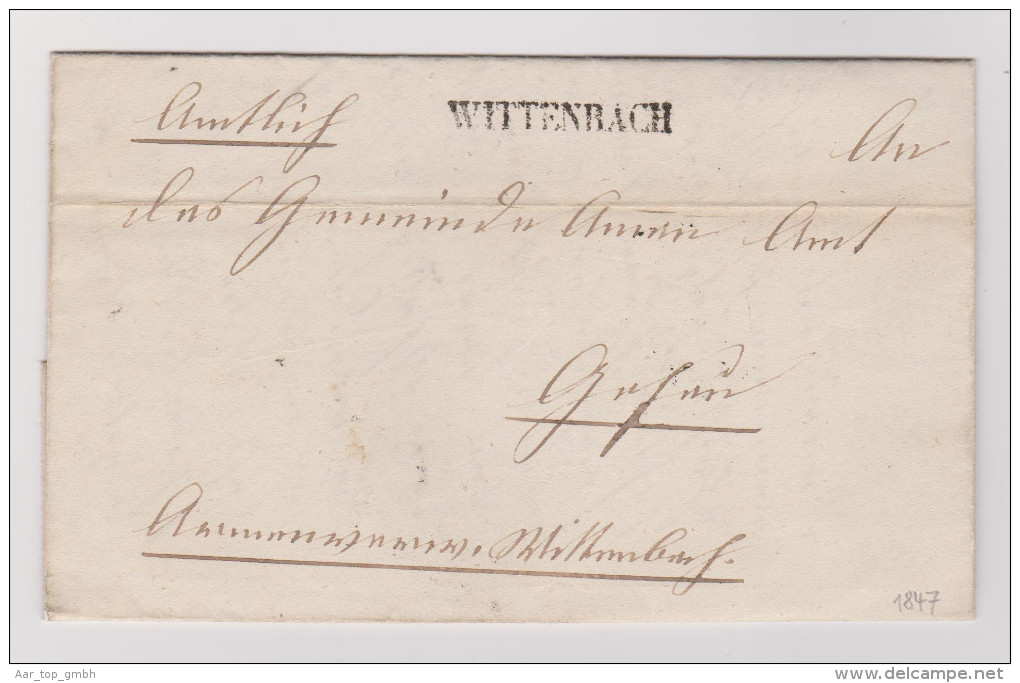 Amtlich
WITTENBACH
An
das Gemeinde Armen Amt
Armenverw. Wittenbach.
1847
Aar_top_gmbh
delcampe.net